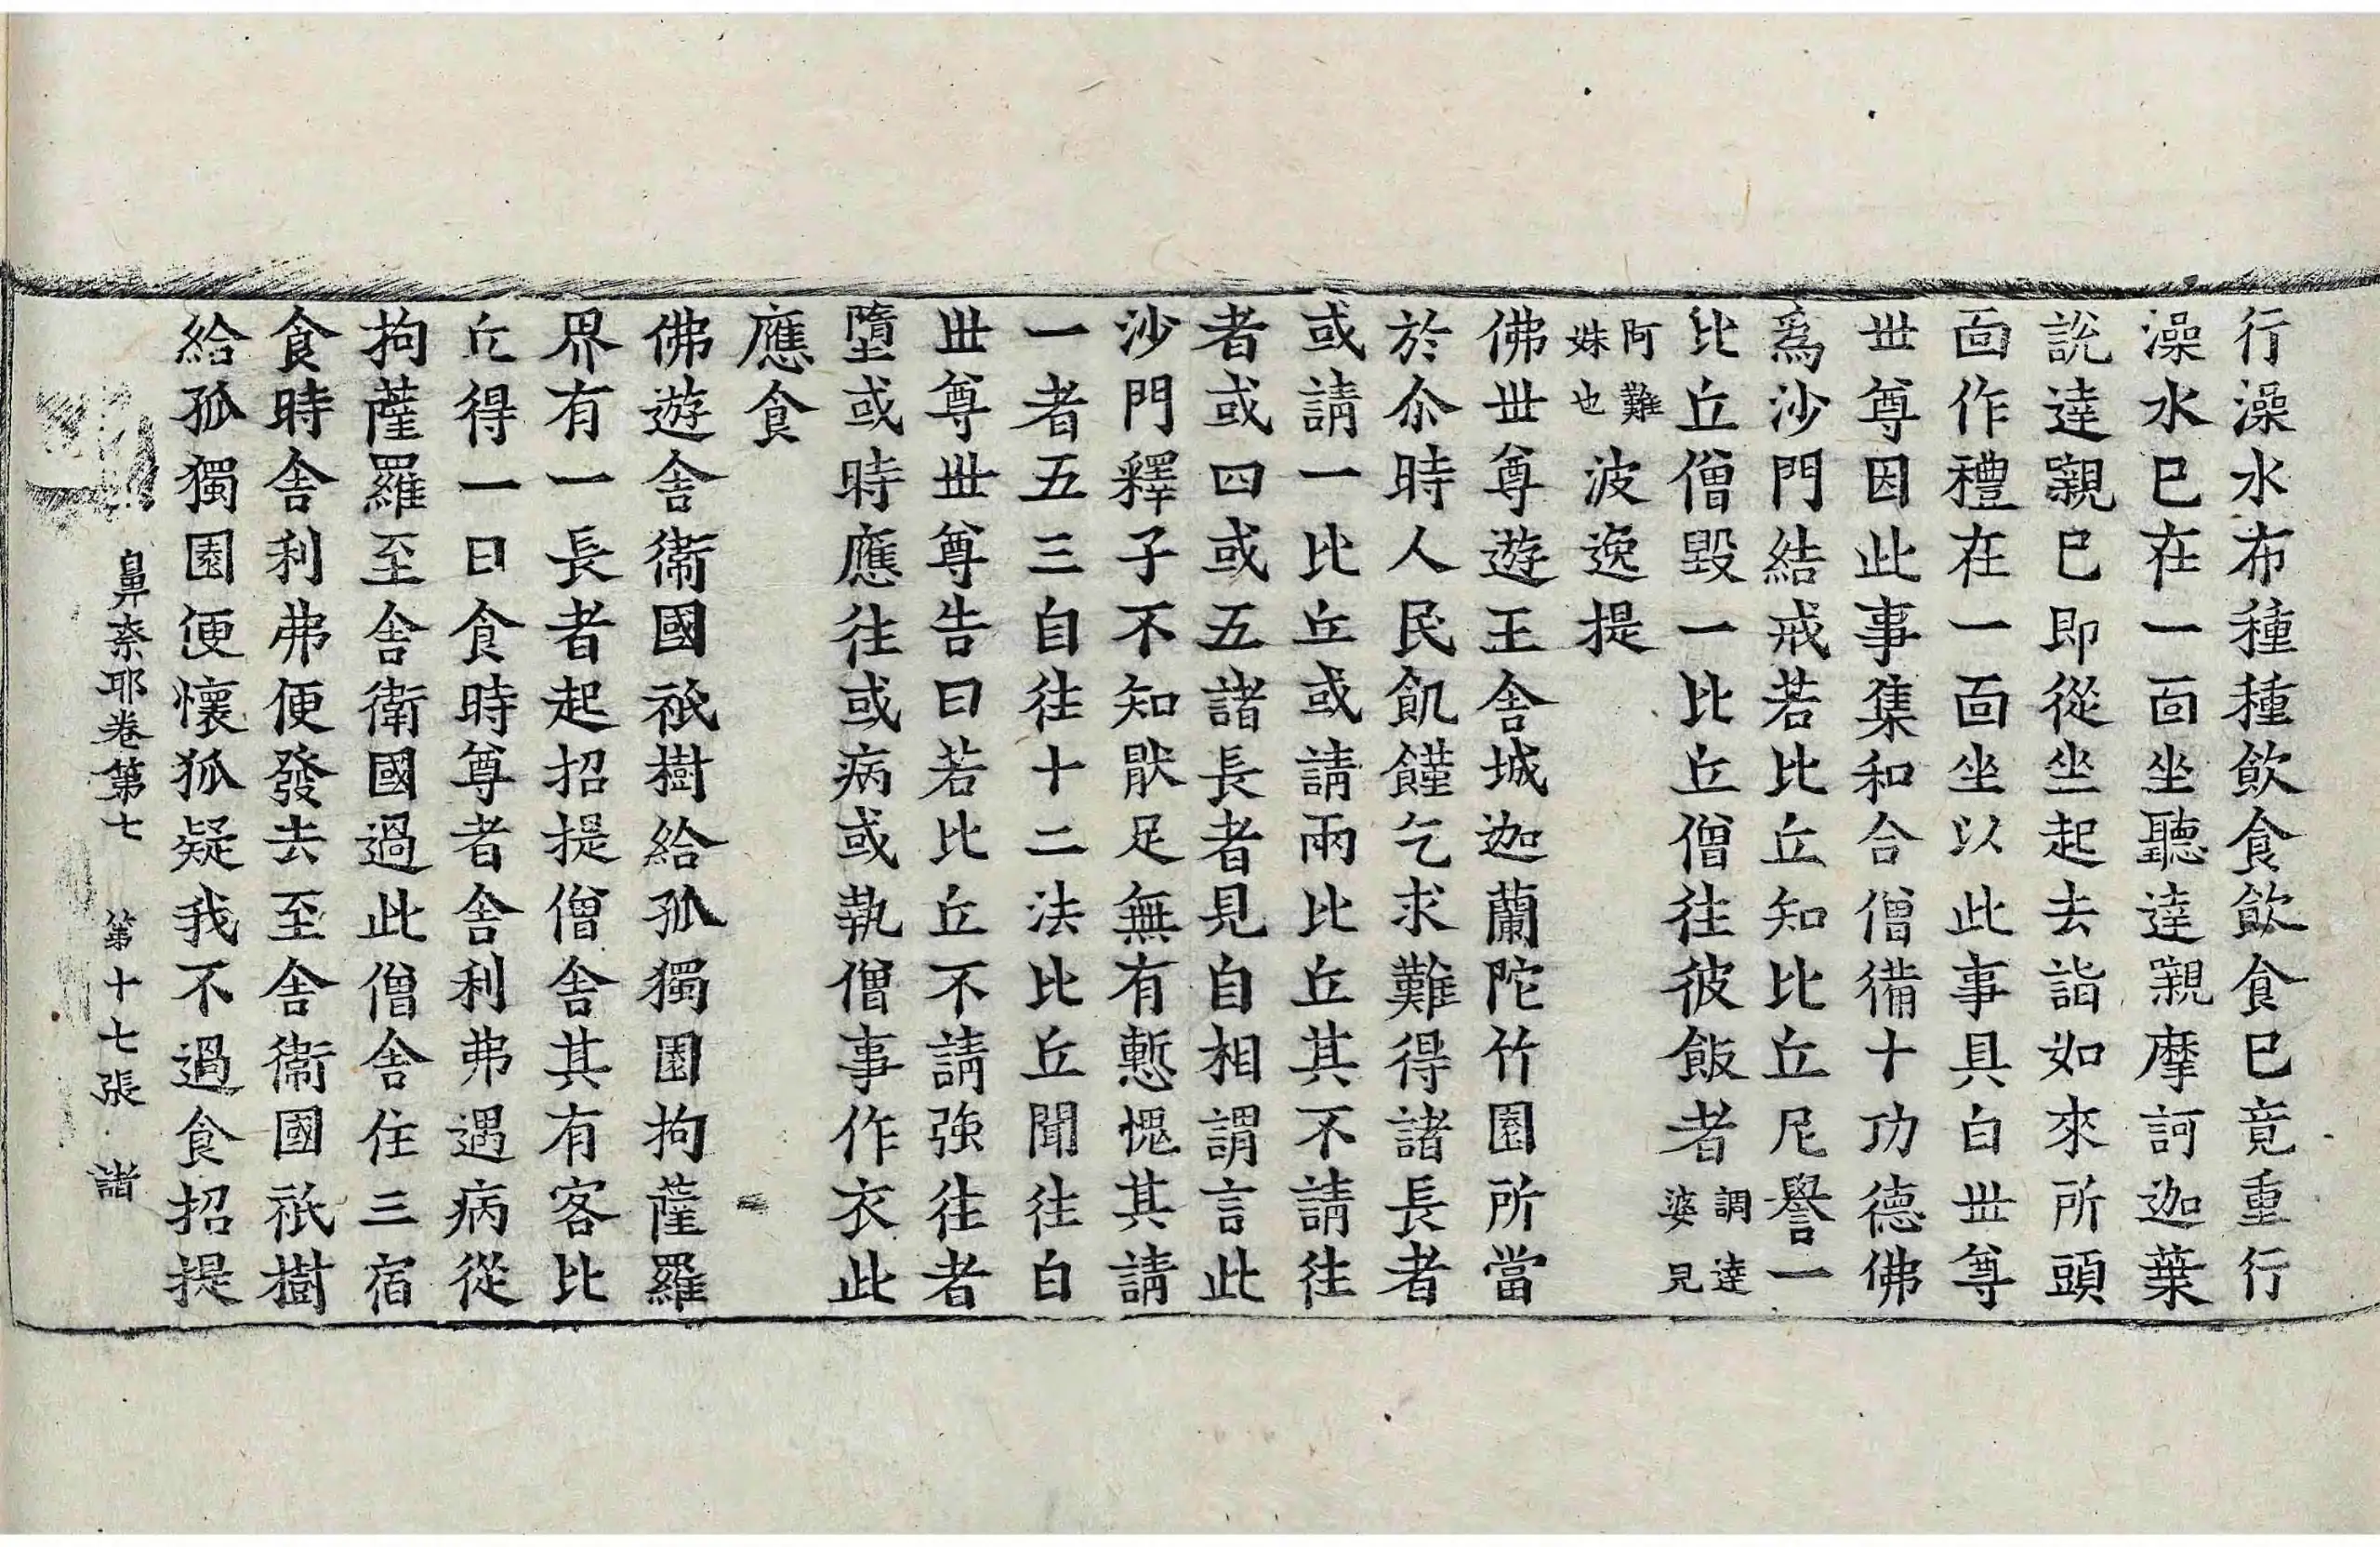 行澡水布種種飲食飲食已竟重行
澡水已在一面坐聽達嚫摩訶迦葉
説達嚫已即從坐起去詣如來所頭
面作禮在一面坐以此事具白世尊
世尊因此事集和合僧備十功德佛
爲沙門結戒若比丘知比丘尼譽一
比丘僧毀一比丘僧往彼飯者調達婆兒
阿難妹也波逸提
佛世尊遊王舍城迦蘭陀竹園所當
於尒時人民飢饉乞求難得諸長者
或請一比丘或請兩比丘其不請往
者或四或五諸長者見自相謂言此
沙門釋子不知猒足無有慙愧其請
一者五三自往十二法比丘聞往白
世尊世尊告曰若比丘不請強往者
墮或時應往或病或執僧事作衣此
應食
佛遊舍衞國祇樹給孤獨園拘薩羅
界有一長者起招提僧舍其有客比
丘得一日食時尊者舍利弗遇病從
拘薩羅至舍衛國過此僧舍住三宿
食時舍利弗便發去至舍衞國祇樹
給孤獨園便懷狐疑我不過食招提
鼻柰耶卷第七 第十七張 諸